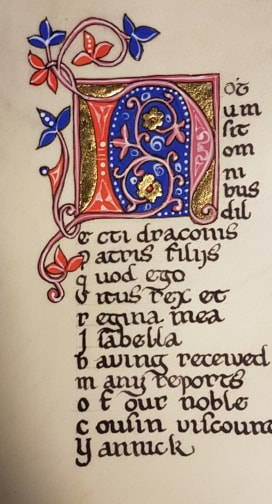 Not
um
sit
om
ni
bus
dil
ecti draconis
patris filijs
quod ego
vitus rex et
regina mea
Isabella
having received
many reports
of our noble
cousin viscount
Yannick